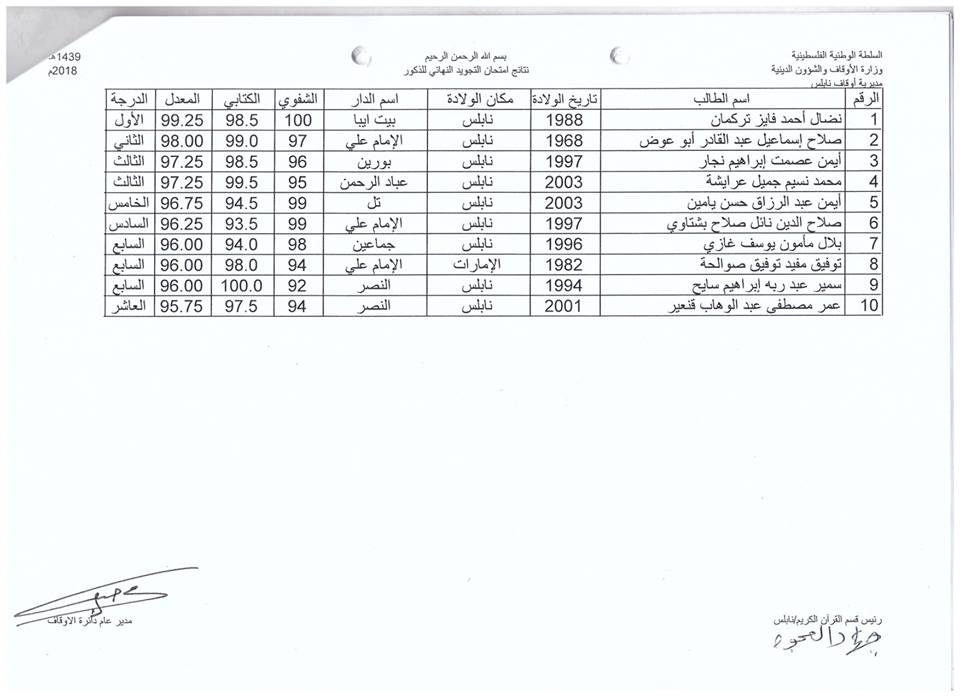 السلطة الوطنية الفلسطينية
وزارة الأوقاف والشؤون الدينية
مديرية أوقاف نابلس
بسم الله الرحمن الرحيم
نتائج امتحان التجويد النهائي للذكور
1439هـ
2018م
الرقم اسم الطالب تاريخ الولادة مكان الولادة اسم الدار الشفوي الكتابي المعدل الدرجة
1 نضال أحمد فايز تركمان 1988 نابلس بيت ايبا 100 98.5 99.25 الأول
2 صلاح إسماعيل عبد القادر أبو عوض 1968 نابلس الإمام علي 97 99.0 98.00 الثاني
3 أيمن عصمت إبراهيم نجار 1997 نابلس بورين 96 98.5 97.25 الثالث
4 محمد نسيم جميل عرايشة 2003 نابلس عباد الرحمن 95 99.5 97.25 الثالث
5 أيمن عبد الرزاق حسن يامين 2003 نابلس تل 99 94.5 96.75 الخامس
6 صلاح الدين نائل صلاح بشتاوي 1997 نابلس الإمام علي 99 93.5 96.25 السادس
7 بلال مأمون يوسف غازي 1996 نابلس جماعين 98 94.0 96.00 السابع
8 توفيق مفيد توفيق صوالحة 1982 الإمارات الإمام علي 94 98.0 96.00 السابع
9 سمير عبد ربه إبراهيم سايح 1994 نابلس النصر 92 100.0 96.00 السابع
10 عمر مصطفى عبد الوهاب قنعير 2001 نابلس النصر 94 97.5 95.75 العاشر
رئيس قسم القرآن الكريم/نابلس
مدير عام دائرة الاوقاف